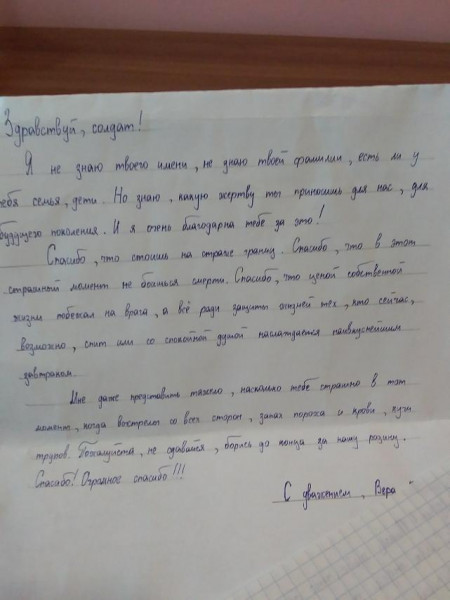 Здравствуй, солдат!
Я не знаю твоего имени, не знаю твоей фамилии, есть ли у
тебя семья, дети. Но знаю, какую жертву ты приносишь для нас, для
будущего поколения. И я очень благодарна тебе за это!
Спасибо, что стоишь на страже границ. Спасибо, что в этот
страшный момент не боишься смерти. Спасибо, что ценой собственной
жизни побежал на врага, а всё ради защиты жизней тех, кто сейчас,
возможно, спит или со спокойной душой наслаждается наивкуснейшим
завтраком.
Мне даже представить тяжело, насколько тебе страшно в тот
момент, когда выстрелы со всех сторон, запах пороха и крови, куча
трупов. Пожалуйста, не сдавайся, борись до конца за нашу родину.
Спасибо! Огромное спасибо!!!
С уважением, Вера